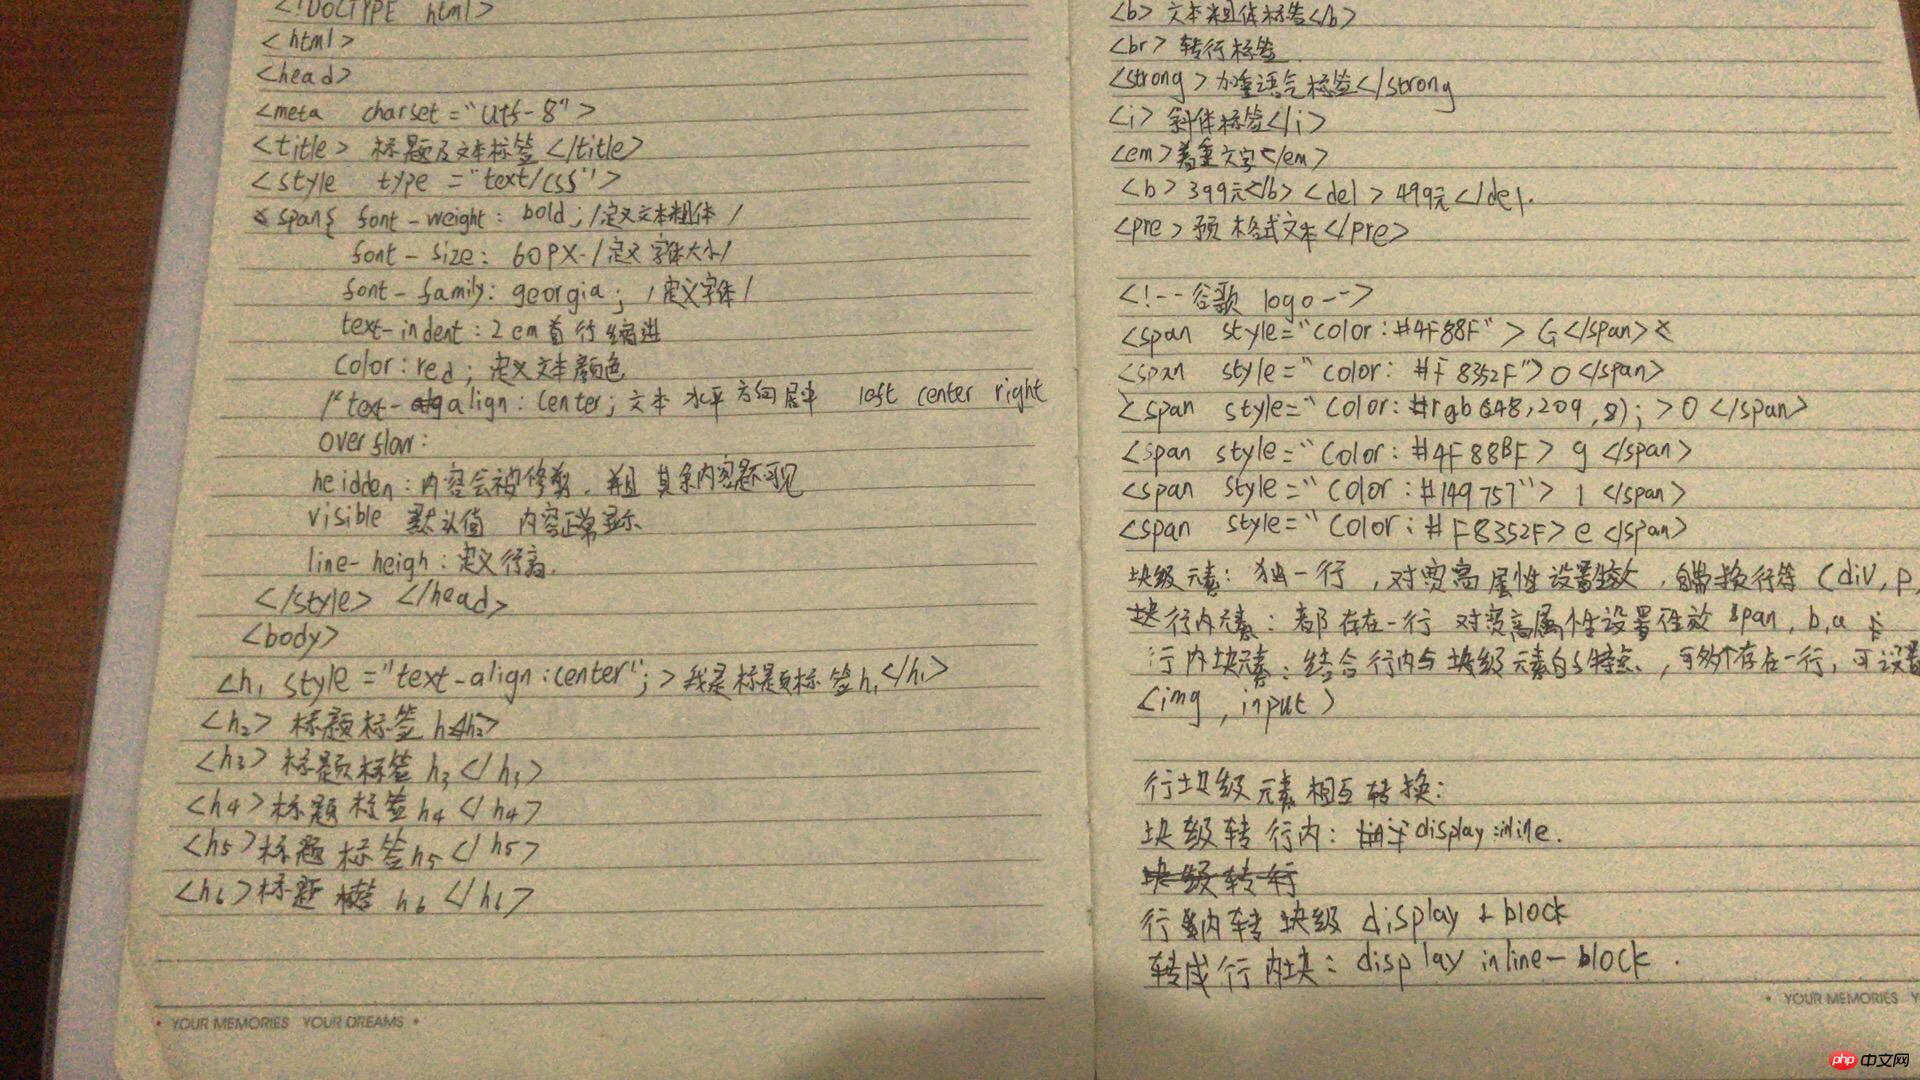 <!DOCTYPE html>
<html>
<head>
<meta charset="utf-8">
<title> 标题及文本标签 </title>
<style type="text/css">
span{ font-weight: bold; /定义文本粗体 /
font-size: 60PX. /定义字体大小/
font-family: georgia; /定义字体/
text-indent: 2em 首行缩进
color: red; 定义文本颜色
/* text-align: center; 文本水平方向居中 left center right
overflow:
heidden: 内容会被修剪, 并且其余内容不可见
visible 默认值 内容正常显示
line-heigh: 定义行高.
</style> </head>
<body>
<h1 style="text-align:center"; >我是标题标签h1</h1>
<h2> 标题标签 h2</h2>
<h3> 标题标签 h3</h3>
<h4>标题标签h4</h4>
<h5>标题标签h5</h5>
<h6>标题标签 h6 </h6>
YOUR MEMORIES YOUR DREAMS
<b> 文本粗体标签</b>
<br> 转行标签
<strong>加重语气标签</strong
<i> 斜体标签</i>
<em>着重文字</em>
<b> 399元</b> <del> 499元</del.
<pre> 预格式文本</pre>
<!--谷歌 logo-->
<span style="color:#4F88F"> G</span>
<span style="color: #F8352F">o</span>
<span style="color:#rgb(248,209,8); >o </span>
<span style="color: #4F88BF> g </span>
<span style="color:#149757"> l </span>
<span style="color:# F8352F> e </span>
块级元素: 独一行, 对宽高属性设置生效, 自带换行等 (div, p,
行内元素: 都存在一行 对宽高属性设置 span, b, a
行内块元素: 结合行内与块级元素的特点, 可多个存在一行, 可设置
<img, input>
行块级元素相互转换:
块级转行内: display:inline.
块级转行
行内转块级 display block
转成行内块: display inline-block .
YOUR MEMORIES Y
php 中文网